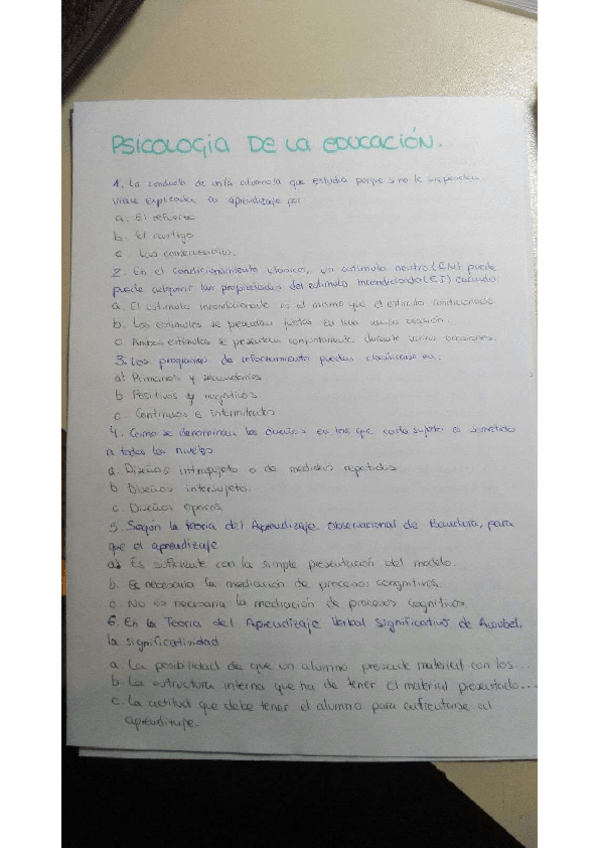 PSICOLOGIA DE LA EDUCACIÓN.
1. La conducta de un/a alumno/a que estudia porque si no le suspenden.
Viene explicada su aprendizaje por
a. El refuerzo
b. El castigo
c. Las consecuencias.
2. En el condicionamiento clásico, un estímulo neutro (EN) puede
puede adquirir las propiedades del estímulo incondicionado (EI) cuando
a. El estímulo incondicionado es el mismo que el estímulo condicionado
b. Los estímulos se presentan juntos en una única ocasión.
c. Ambos estímulos se presentan conjuntamente durante varias ocasiones.
3. Los programas de reforzamiento pueden clasificarse en:
a) Primarios y secundarios
b Positivos y negativos.
c. Continuos e intermitentes
4. Como se denominan los diseños en los que cada sujeto es sometido
a todos los niveles
a. Diseños intrasujeto o de medidas repetidas
b Diseños intersujeto.
c. Diseños
5. Según la teoría del Aprendizaje Observacional de Bandura, para
que el aprendizaje
a) Es suficiente con la simple presentación del modelo.
b. Es necesaria la mediación de procesos cognitivos.
c. No es necesaria la mediación de procesos cognitivos
6. En la Teoría del Aprendizaje Verbal Significativo de Ausubel,
la significatividad
a. La posibilidad de que un alumno presente material con los...
b. La estructura interna que ha de tener el material presentado...
c. La actitud que debe tener el alumno para enfrentarse al
aprendizaje.